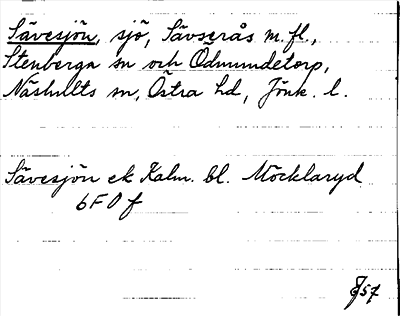 Sävesjön, sjö, Sävserås m.fl.,
Stenberga sn och Ödmundetorp,
Näshults sn, Östra hd, Jönk. l.
Sävesjön ek Kalm. bl. Möcklaryd
6F0f